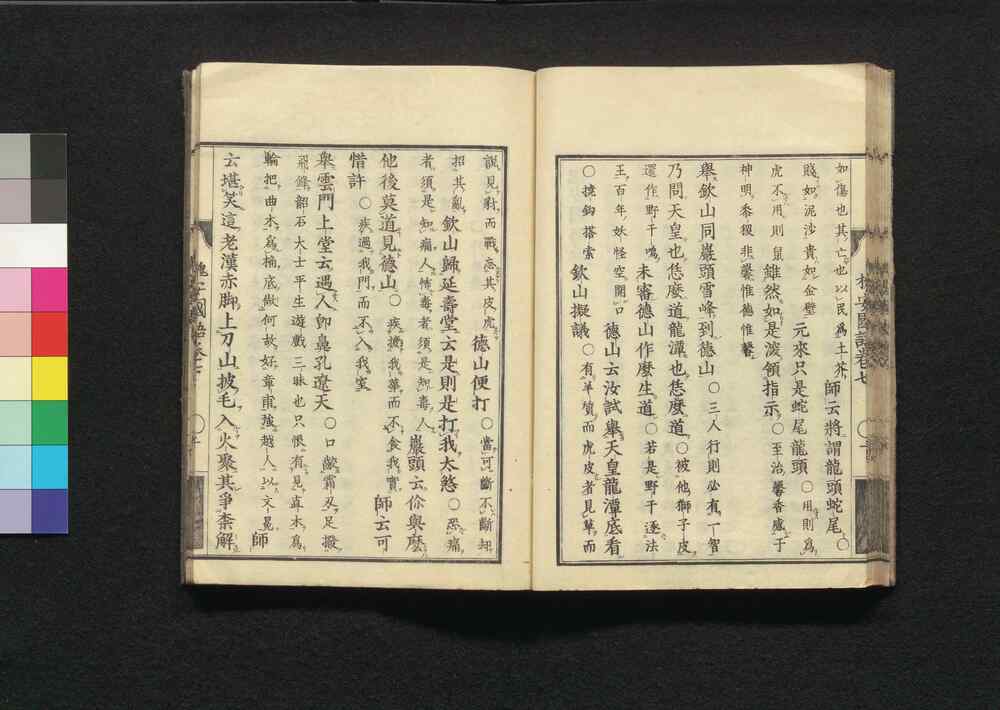 如傷也其亡也以民爲土芥師云將謂龍頭蛇尾○
賤如泥沙貴如金璧元來只是蛇尾龍頭○用則爲
虎不用則鼠雖然如是溌領指示○至治馨香感于
神明黍稷非馨惟德惟馨
舉欽山同巖頭雪峰到德山○三人行則必有一智
乃問天皇也恁麼道龍潭也恁麼道○被他獅子皮
還作野干鳴未審德山作麼生道○若是野干逐法
王百年妖怪空開口德山云汝試舉天皇龍潭底看
○掠鉤搭索欽山擬議○有羊質而虎皮者見草而
槐安國語卷七
說見豺而戰忘其皮虎德山便打○當可斷不斷却
招其亂欽山歸延壽堂云是則是打我太煞○恶痛
者須是知痛人怖毒者須是知毒人巖頭云伱與麼
他後莫道見德山○疾擲我藁而不食我實師云可
惜許○疾過我門而不入我室
舉雲門上堂云遇人卽鼻孔遼天○口齩霜刃足撒
飛鋒韶石大士平生遊戲三昧也只恨有見直木爲
輪把曲木爲桷底做何故好章甫强越人以文冕師
云堪笑這老漢赤脚上刀山披毛入火聚其爭柰解
槐安國語卷七